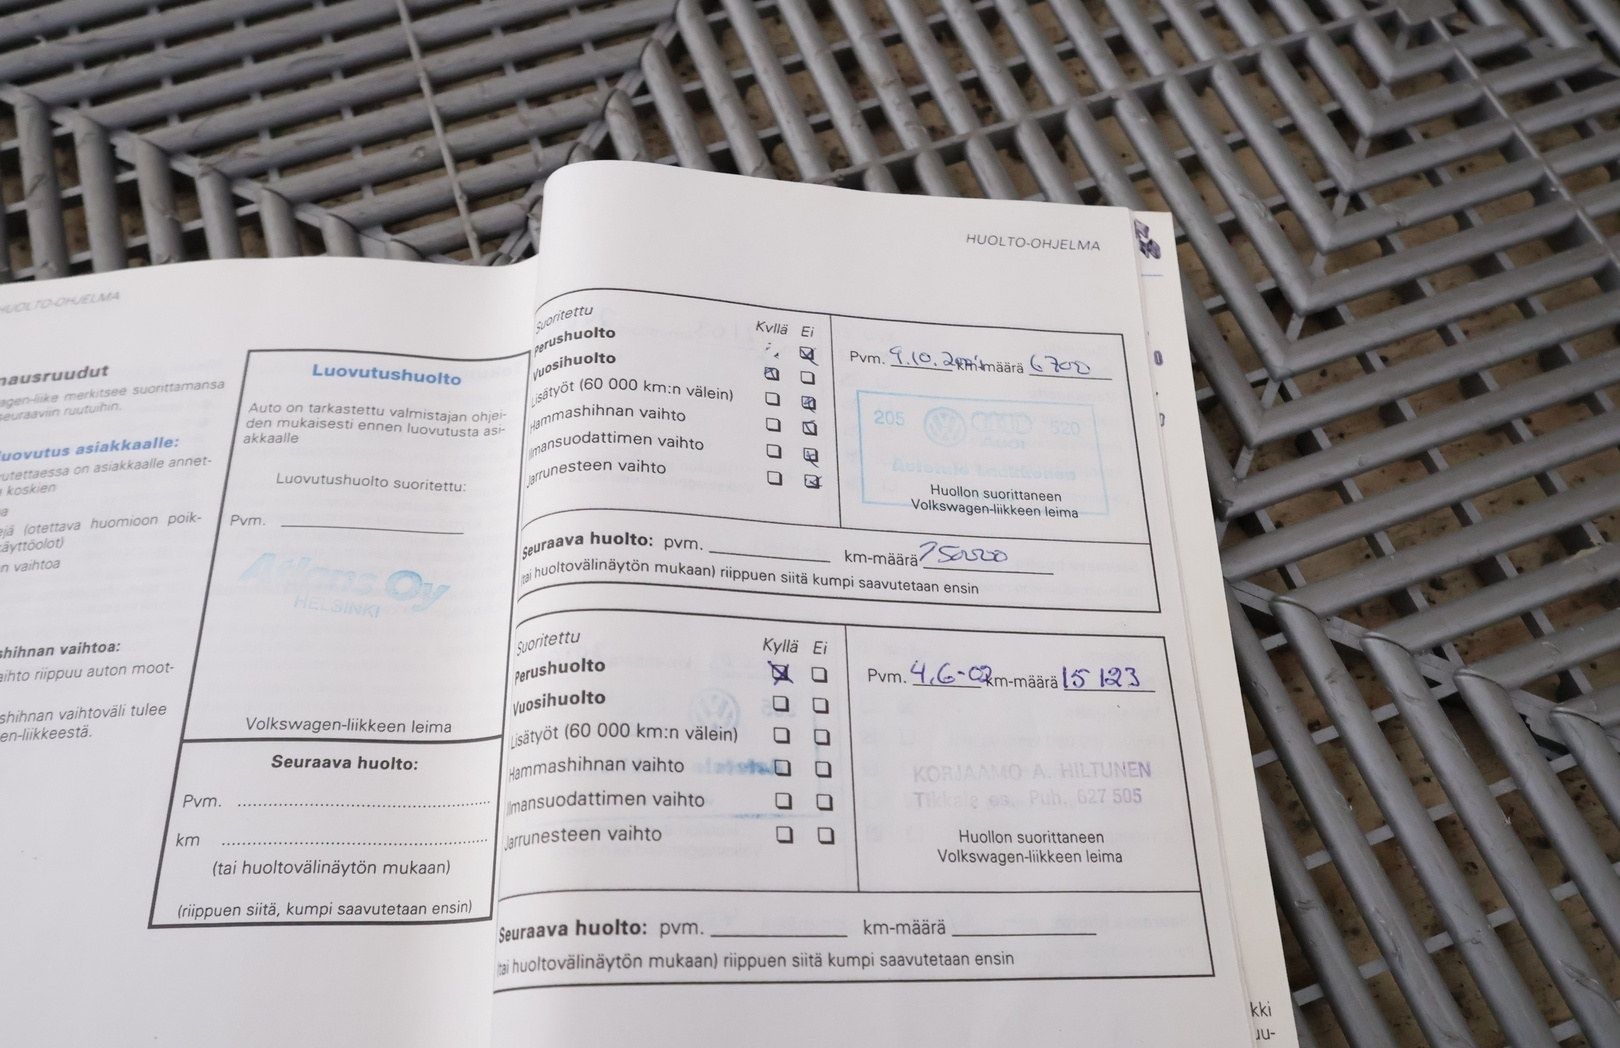 HUOLTO-OHJELMA
nausruudut
agen-liike merkitsee suorittamansa
seuraaviin ruutuihin.
luovutus asiakkaalle:
utettaessa on asiakkaalle annet-
koskien
ejä (otettava huomioon poik-
käyttöolot)
n vaihtoa
shihnan vaihtoa:
aihto riippuu auton moot-
shihnan vaihtoväli tulee
en-liikkeestä.
Luovutushuolto
Auto on tarkastettu valmistajan ohjei-
den mukaisesti ennen luovutusta asi-
akkaalle
Luovutushuolto suoritettu:
Pvm.
Atlans Oy
HELSINKI
Volkswagen-liikkeen leima
Seuraava huolto:
Pvm.
km
(tai huoltovälinäytön mukaan)
(riippuen siitä, kumpi saavutetaan ensin)
HUOLTO-OHJELMA
Suoritettu Kyllä Ei
Perushuolto
Vuosihuolto
Lisätyöt (60 000 km:n välein)
Hammashihnan vaihto
Ilmansuodattimen vaihto
Jarrunesteen vaihto
Pvm. 9.10. km-määrä 6700
205 520
Audi
Huollon suorittaneen
Volkswagen-liikkeen leima
Seuraava huolto: pvm. km-määrä
(tai huoltovälinäytön mukaan) riippuen siitä kumpi saavutetaan ensin
Suoritettu Kyllä Ei
Perushuolto
Vuosihuolto
Lisätyöt (60 000 km:n välein)
Hammashihnan vaihto
Ilmansuodattimen vaihto
Jarrunesteen vaihto
Pvm. 4.6-02 km-määrä 15 123
KORJAAMO A. HILTUNEN
Tikkala as. Puh. 627 505
Huollon suorittaneen
Volkswagen-liikkeen leima
Seuraava huolto: pvm. km-määrä
(tai huoltovälinäytön mukaan) riippuen siitä kumpi saavutetaan ensin
kki
uu-